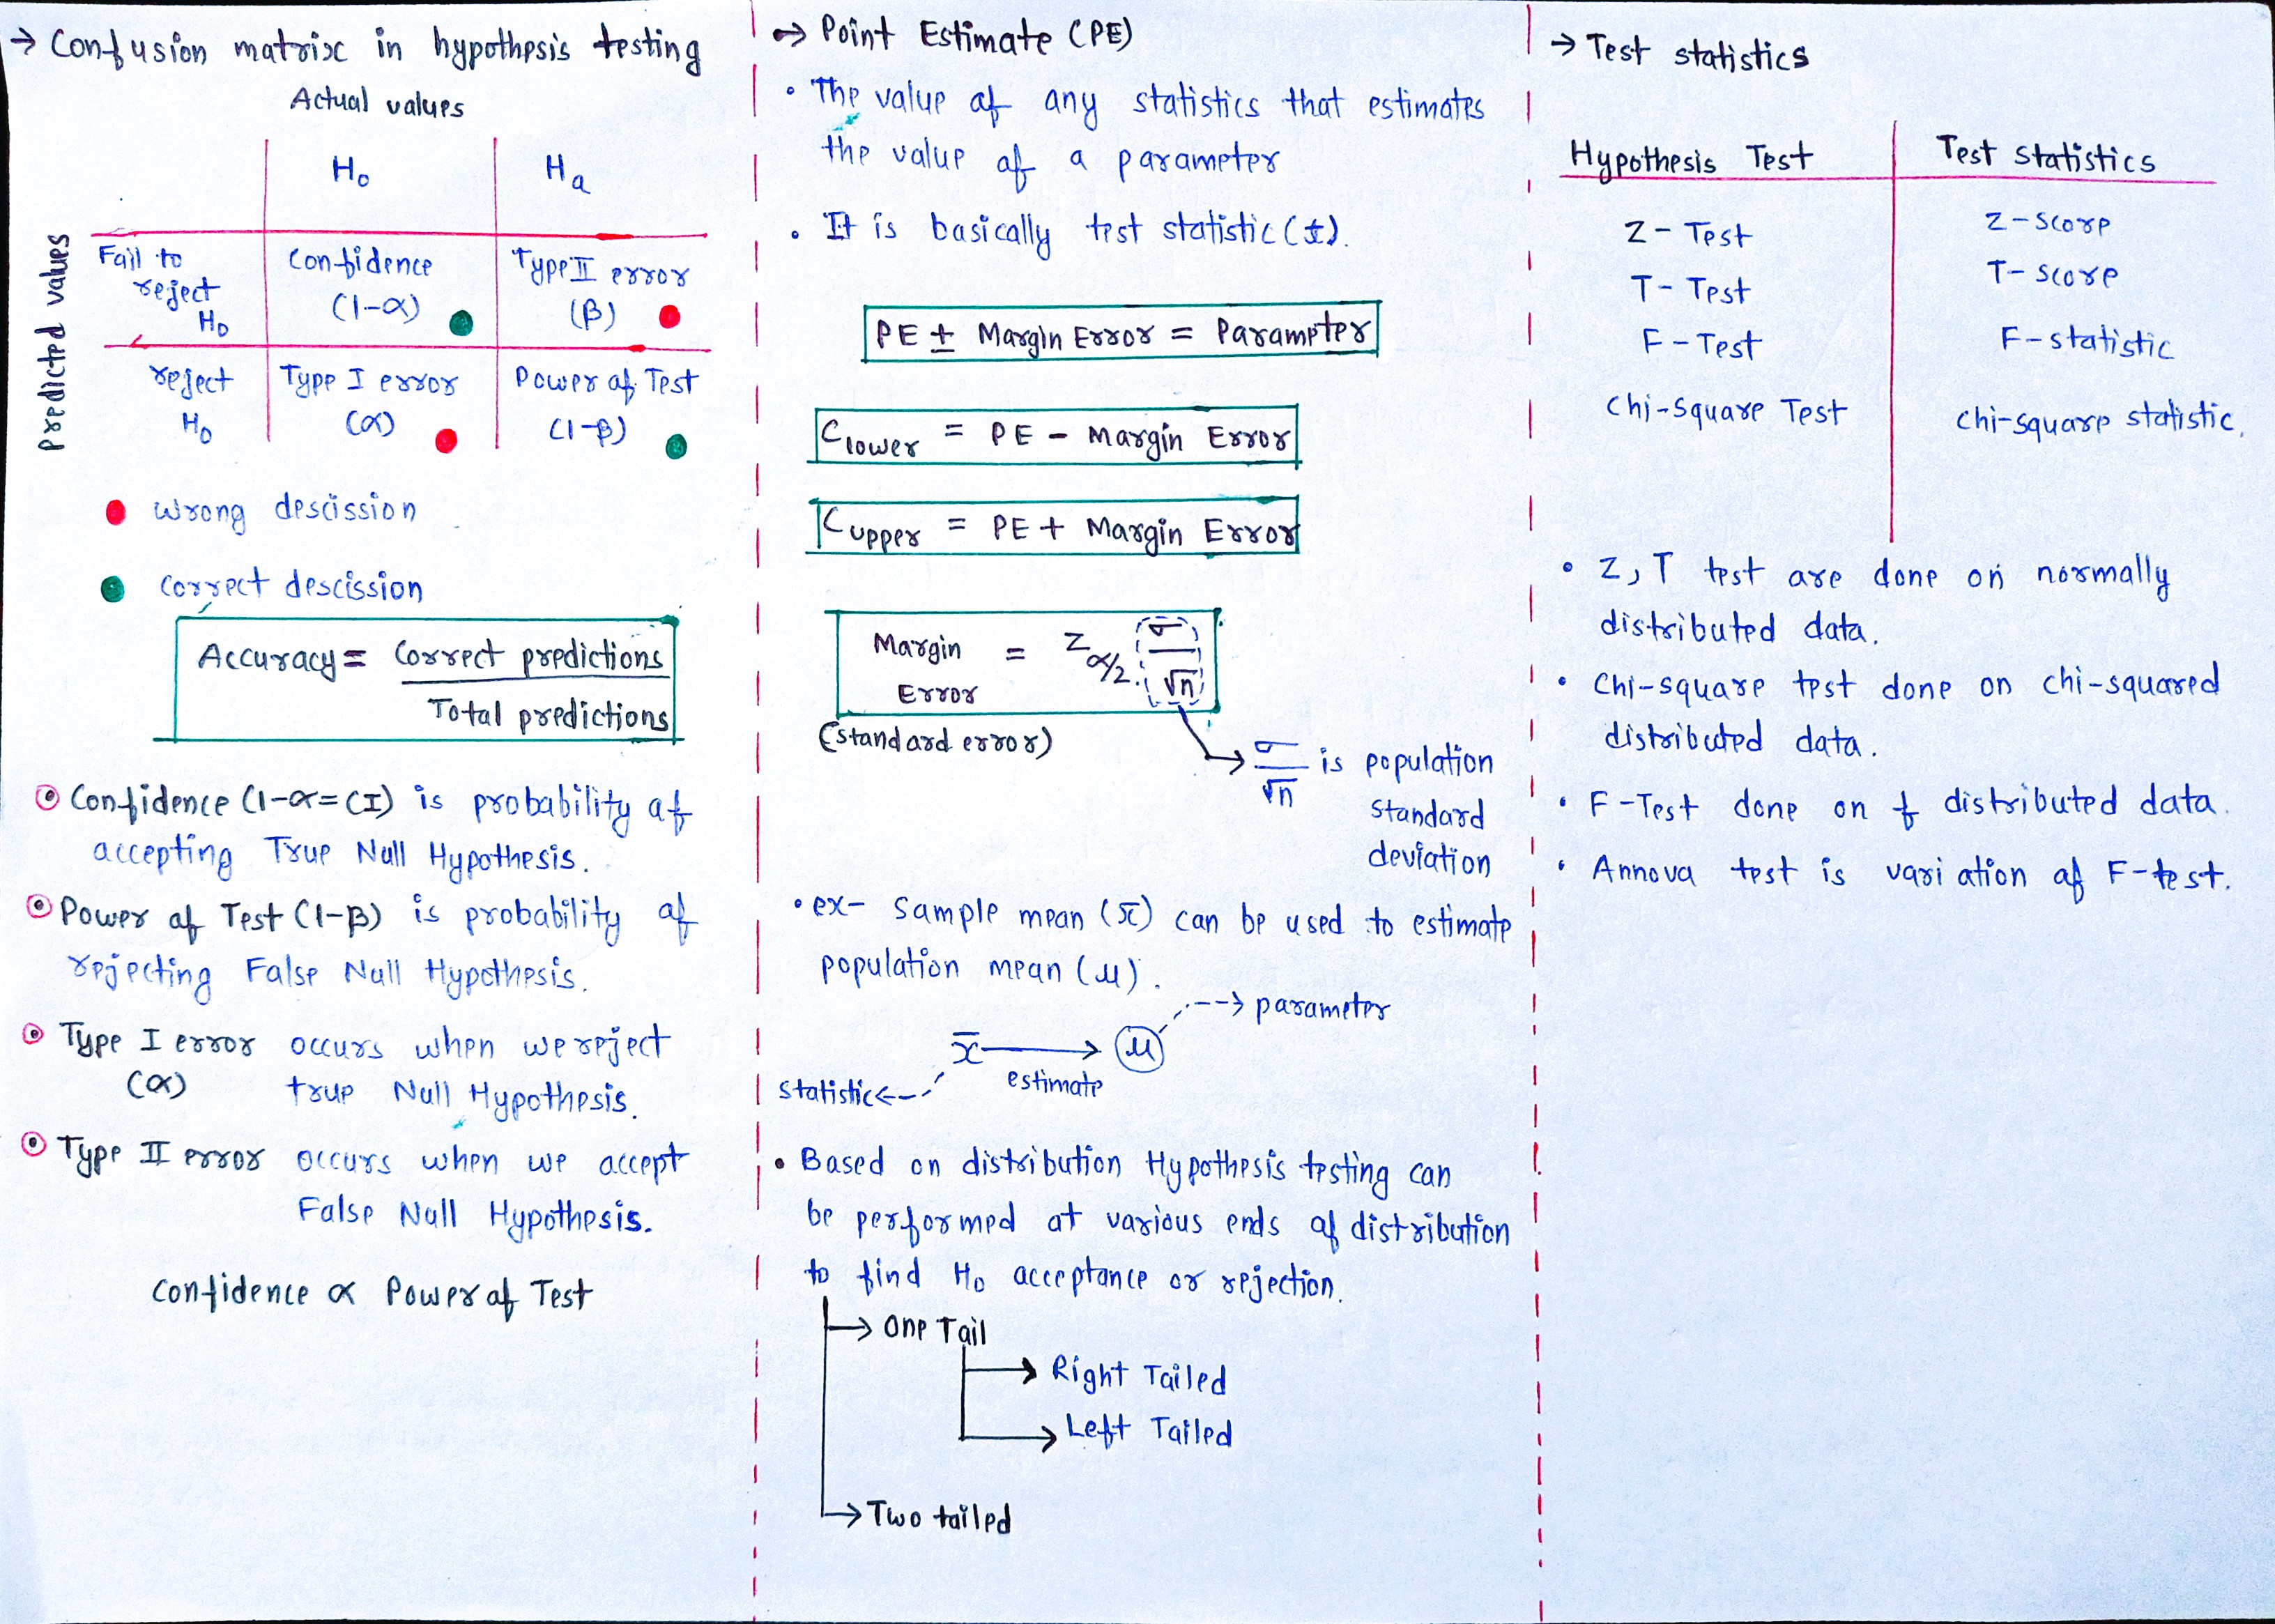 → Confusion matrix in hypothesis testing
Actual values
H₀ Hₐ
Predicted values
Fail to reject H₀
Confidence (1-α)
Type II error (β)
reject H₀
Type I error (α)
Power of Test (1-β)
wrong descission
correct descission
Accuracy = Correct predictions
Total predictions
Confidence (1-α=CI) is probability of
accepting True Null Hypothesis.
Power of Test (1-β) is probability of
rejecting False Null Hypothesis.
Type I error occurs when we reject
(α) true Null Hypothesis.
Type II error occurs when we accept
False Null Hypothesis.
Confidence α Power of Test
→ Point Estimate (PE)
• The value of any statistics that estimates
the value of a parameter
• It is basically test statistic (t).
PE ± Margin Error = Parameter
C lower = PE - Margin Error
C upper = PE + Margin Error
Margin Error = Z α/2 . σ/√n
(standard error)
σ/√n is population
standard
deviation
• ex- sample mean (x̄) can be used to estimate
population mean (μ).
--> parameter
x̄ → μ
statistic <-- estimate
• Based on distribution Hypothesis testing can
be performed at various ends of distribution
to find H₀ acceptance or rejection.
→ One Tail
→ Right Tailed
→ Left Tailed
→ Two tailed
→ Test statistics
Hypothesis Test Test statistics
Z - Test Z - score
T - Test T - score
F - Test F - statistic
Chi-Square Test Chi-square statistic.
• Z, T test are done on normally
distributed data.
• Chi-square test done on chi-squared
distributed data.
• F-Test done on f distributed data.
• Annova test is variation of F-test.